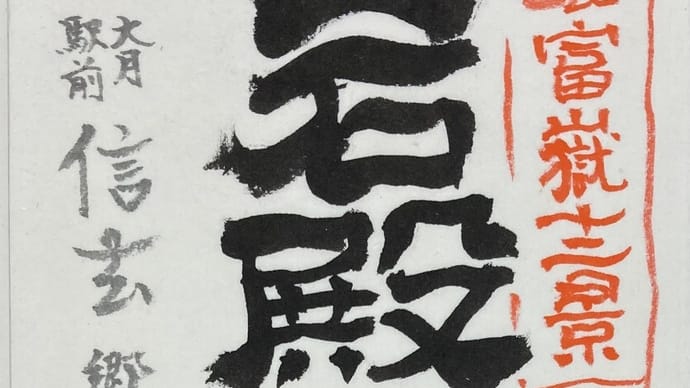 富嶽十二景
岩殿
大月
駅前
信玄